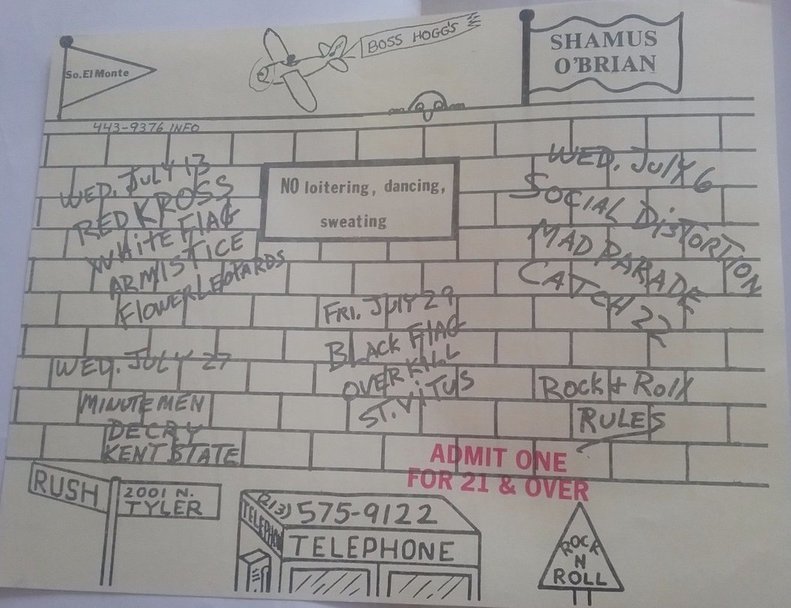 BOSS HOGG'S
SHAMUS
O'BRIAN
So. El Monte
443-9376 INFO
WED. JULY 13
RED KROSS
WHITE FLAG
ARMISTICE
FLOWER LEOPARDS
NO loitering, dancing,
sweating
WED. JULY 6
SOCIAL DISTORTION
MAD PARADE
CATCH 22
FRI. JULY 29
BLACK FLAG
OVERKILL
ST. VITUS
WED. JULY 27
MINUTEMEN
DECRY
KENT STATE
ROCK + ROLL
RULES
ADMIT ONE
FOR 21 & OVER
RUSH
2001 N.
TYLER
(213) 575-9122
TELEPHONE
TELEPHONE
ROCK
N
ROLL